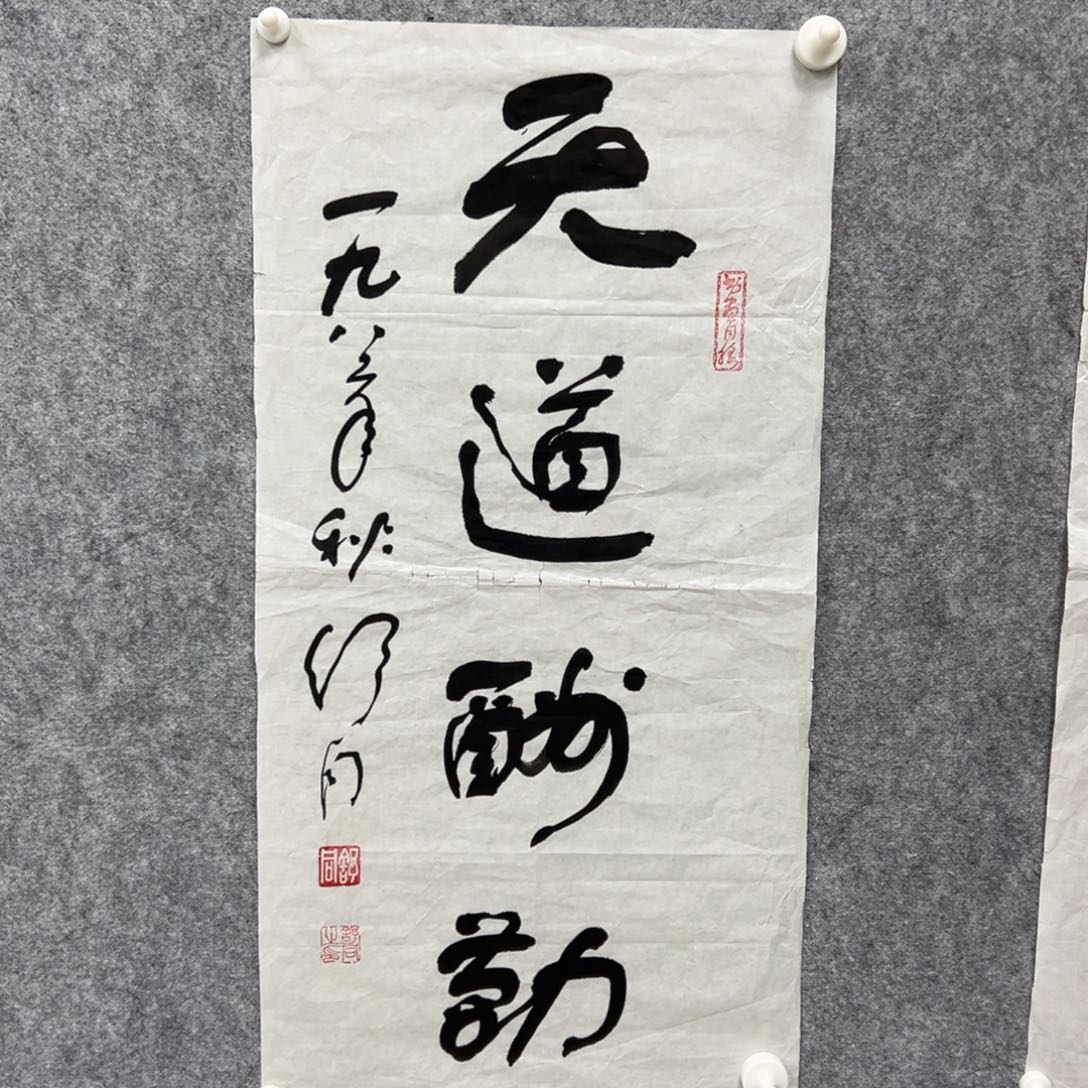 天道酬勤
一九八三年秋 舒同
舒同